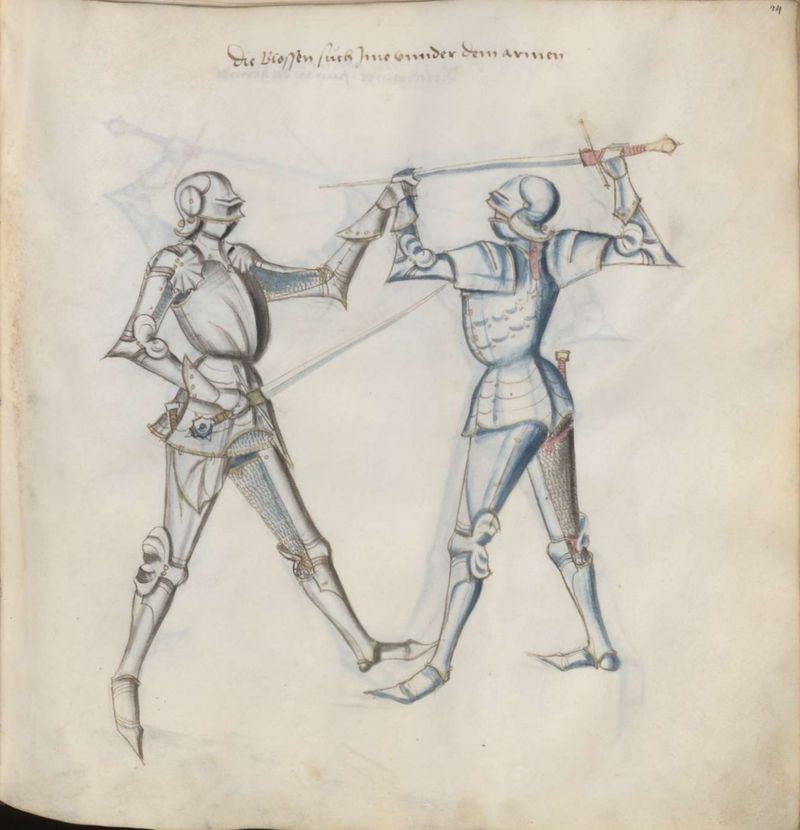 24
die Blossen such Ime vnnder dem armen